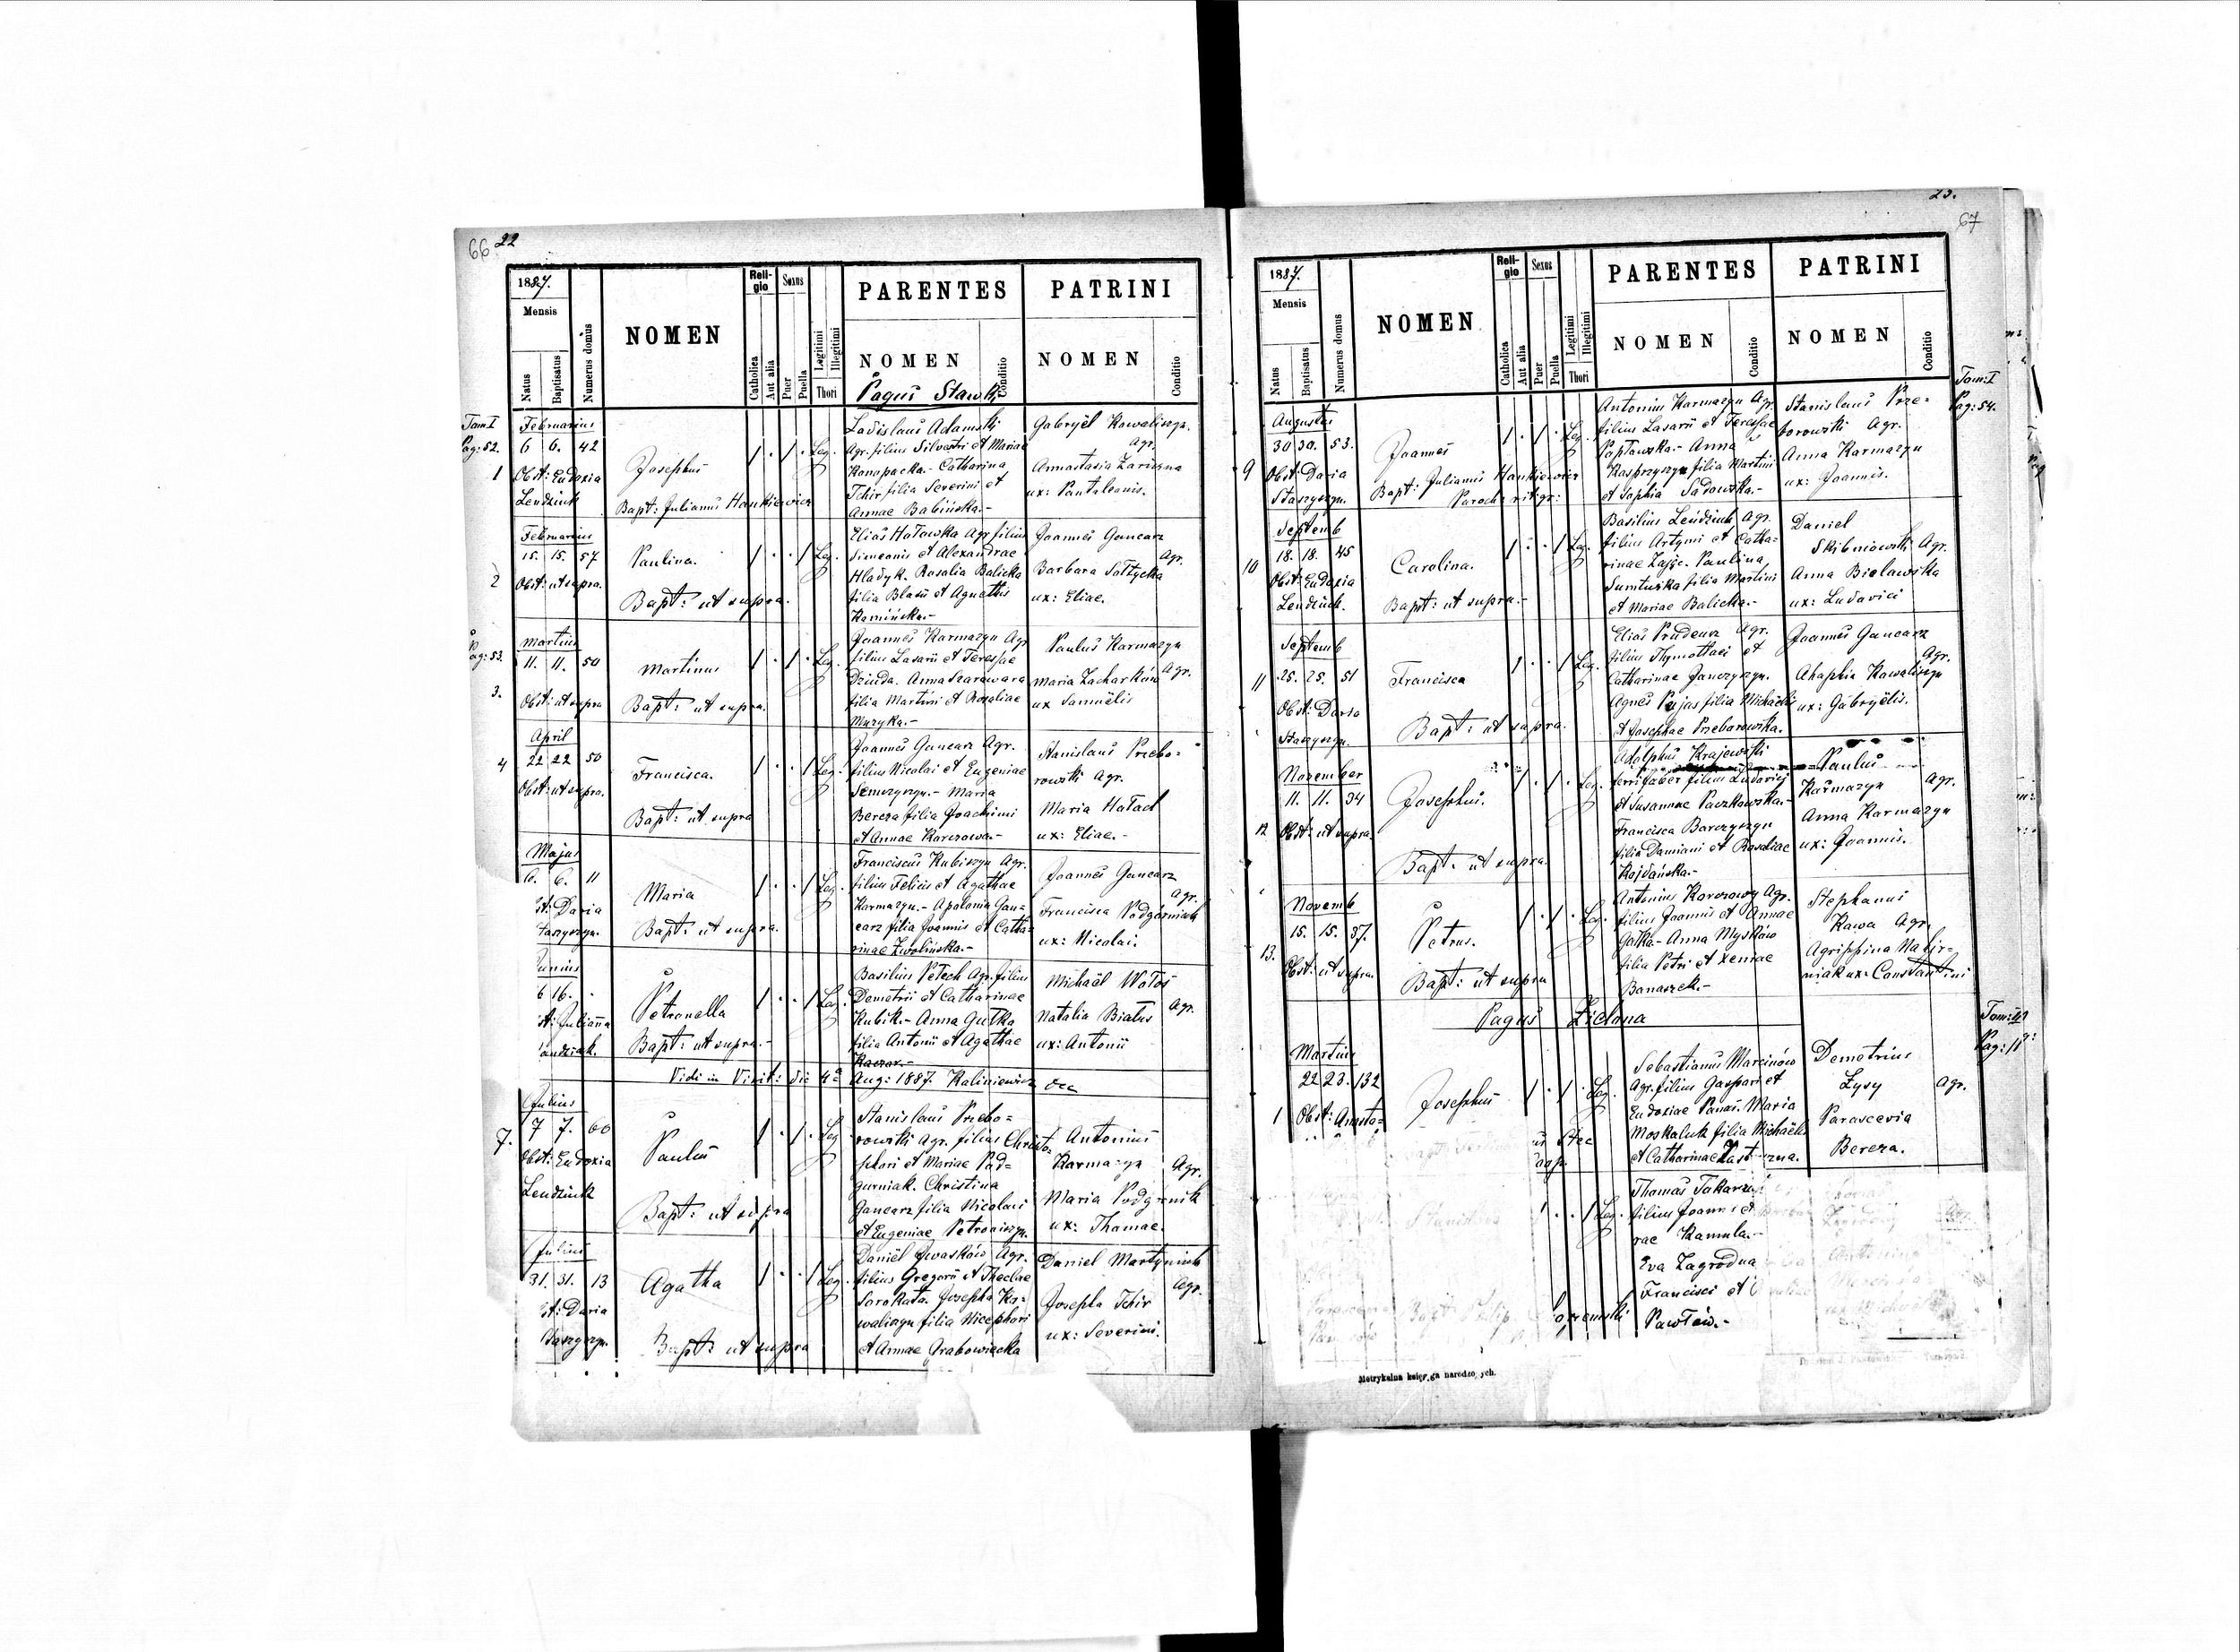 66 22
1887.
Mensis
Natus
Baptisatus
Numerus domus
NOMEN
Reli-
gio
Catholica
Aut alia
Sexus
Puer
Puella
Legitimi
Illegitimi
Thori
PARENTES
NOMEN
Conditio
PATRINI
NOMEN
Conditio
Pagus Stawki
Tom I
Pag: 52.
1
Februarius
6 6. 42
Obst: Eudoxia
Lendziuk
Josephus
Bapt: Julianus Hankiewicz
1 . 1 . Leg.
Ladislaus Adamski
Agr. filius Silvestri et Mariae
Konopacka.- Catharina
Tchir filia Severini et
Annae Babińska.-
Gabryël Kowaliszyn.
Agr.
Annastasia Zariczna
ux: Pantaleonis.
2
Februarius
15. 15. 57
Obst: ut supra.
Paulina.
Bapt: ut supra.
1 . . 1 Leg.
Elias Hoławka Agr filius
Simeonis et Alexandrae
Hladyk. Rosalia Balicka
filia Blasii et Agnethis
Kamińska.-
Joannes Gancarz
Agr.
Barbara Sołtycka
ux: Eliae.
Pag: 53.
3.
Martius
11. 11. 50
Obst: ut supra
Martinus
Bapt: ut supra.
1 . 1 . Leg.
Joannes Karmazyn Agr
filius Lasarii et Teressae
Dziuda. Anna Szarawara
filia Martini et Rosaliae
Muzyka.-
Paulus Karmazyn
Agr.
Maria Zacharków
ux Samuëlis
4
April
22 22 50
Obst: ut supra.
Francisca.
Bapt: ut supra
1 . . 1 Leg.
Joannes Gancarz Agr.
filius Nicolai et Eugeniae
Semczyszyn.- Maria
Bereza filia Joachimi
et Annae Karczowa.-
Stanislaus Przebo=
rowski Agr.
Maria Hoład
ux: Eliae.-
Majus
6. 6. 11
st: Daria
taszyszyn.
Maria
Bapt: ut supra.
1 . . 1 Leg.
Franciscus Kubiszyn Agr.
filius Felicis et Agathae
Karmazyn.- Apolonia Gan=
carz filia Joannis et Catha=
rinae Zwolińska.-
Joannes Gancarz
Agr.
Francisca Podgórniak
ux: Nicolai.
unius
6 16. .
st: Julianna
andziak.
Petronella
Bapt: ut supra.-
1 . . 1 Leg.
Basilius Petech Agr. filius
Demetrii et Catharinae
Kubik.- Anna Gutka
filia Antonii et Agathae
Kaczor.-
Michaël Wołos
Agr.
Natalia Białus
ux: Antonii
Vidi in Visit: die 4ª Aug: 1887. Kaliniewicz
7.
Julius
7 7. 60
Obst: Eudoxia
Lendziuk
Paulus
Bapt: ut supra
1 . 1 . Leg
Stanislaus Przebo=
rowski Agr. filius Christo=
phori et Mariae Pod=
gurniak. Christina
Gancarz filia Nicolai
et Eugeniae Petroaiszyn.
Antonius
Karmazyn Agr.
Maria Podgórnik
ux: Thomae.
Julius
31. 31. 13
st: Daria
Agatha
Bapt: ut supra
1 . . 1 Leg.
Daniël Iwasków Agr.
filius Gregorii et Theclae
Sorokata. Josepha Ko=
waliszyn filia Nicephori
et Annae Grabowiecka
Daniel Martyniuk
Agr.
Josepha Tchir
ux: Severini.
23.
67
1887.
Mensis
Natus
Baptisatus
Numerus domus
NOMEN
Reli-
gio
Catholica
Aut alia
Sexus
Puer
Puella
Legitimi
Illegitimi
Thori
PARENTES
NOMEN
Conditio
PATRINI
NOMEN
Conditio
Tom: I
Pag: 54.
9
Augustus
30 30. 53.
Obst: Daria
Staszyszyn.
Joannes
Bapt: Julianus Hankiewicz
Paroch rit: gr:
1 . 1 . Leg.
Antonius Karmazyn Agr.
filius Lasarii et Teressae
Popławska.- Anna
Kasprzyszyn filia Martini
et Sophia Sadowska.-
Stanislaus Prze=
borowski Agr.
Anna Karmazyn
ux: Joannis.
10
Septemb
18. 18. 45
Obst: Eudoxia
Lendziuk.
Carolina.
Bapt: ut supra.-
1 . . 1 Leg.
Basilius Lendziuk Agr.
filius Artymi et Catha=
rinae Zając. Paulina
Sumtuska filia Martini
et Mariae Balicka.-
Daniel
Skibniowski Agr.
Anna Bielawska
ux: Ludovici
11
Septemb
25. 25. 51
Obst: Daria
Staszyszyn.
Francisca
Bapt: ut supra.
1 . . 1 Leg.
Elias Prudeus Agr.
filius Thymothaei et
Catharinae Janczyszyn.
Agnes Pujas filia Michaëlis
et Josephae Przeborowska.
Joannes Gancarz
Agr.
Ahaphia Kowaliszyn
ux: Gabryëlis.
12
November
11. 11. 34
Obst: ut supra.
Josephus.
Bapt: ut supra.
1 . 1 . Leg.
Adolphus Krajewski
ferri faber filius Ludovici
et Susannae Paczkowska.-
Francisca Barczyszyn
filia Damiani et Rosaliae
Kojdańska.-
Paulus
Karmazyn Agr.
Anna Karmazyn
ux: Joannis.
13.
Novemb
15. 15. 37.
Obst: ut supra.
Petrus.
Bapt: ut supra
1 . 1 . Leg.
Antonius Korczowy Agr.
filius Joannis et Annae
Gałka.- Anna Mysków
filia Petri et Xeniae
Banaszek.-
Stephanus
Kawa Agr.
Agrippina
ux: Constantini
Pagus Zielona
Pag: 11
1
Martius
22 23. 132
Obst: Anasta=
Josephus
1 . 1 . Leg.
Sebastianus Marcinów
Agr. filius Gaspari et
Eudoxiae Panas. Maria
Moskaluk filia Michaëlis
et Catharinae
Demetrius
Zysy Agr.
Parascevia
Bereza.
1 . . 1 Leg.
Thomas
filius Joannis et
rae Kamula.-
Eva Zagrodna
Francisci et
Pawłów.-
Metrykalna księga narodzonych.